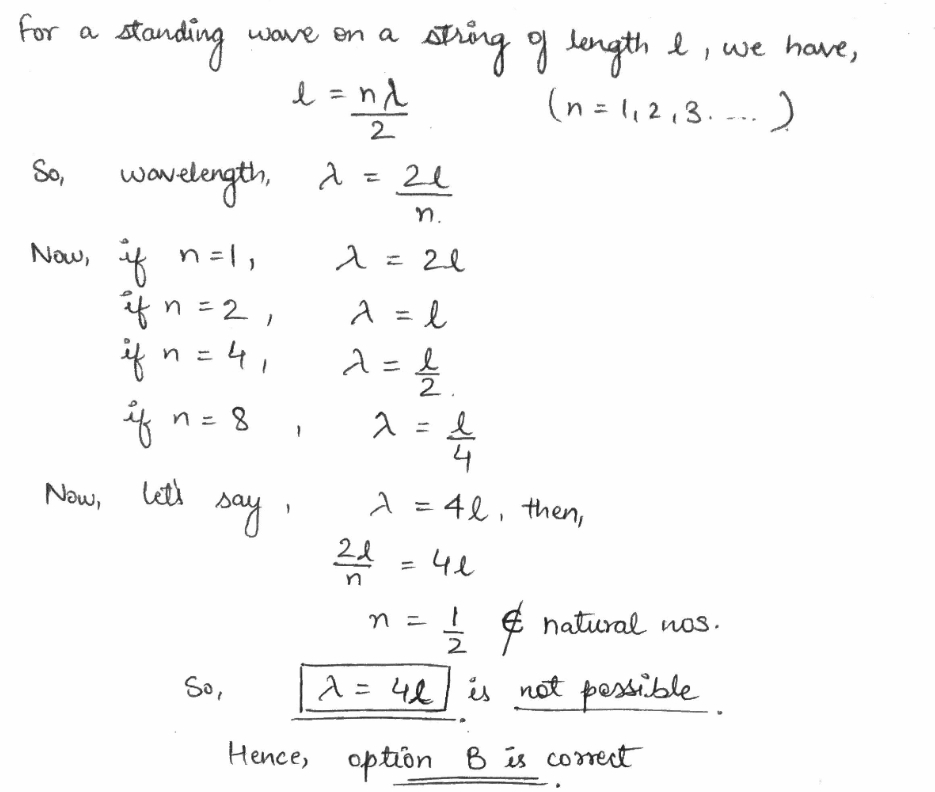 For a standing wave on a string of length l, we have,
l = nλ/2 (n = 1, 2, 3. .... )
So, wavelength, λ = 2l/n.
Now, if n = 1, λ = 2l
if n = 2, λ = l
if n = 4, λ = l/2.
if n = 8, λ = l/4
Now, let's say, λ = 4l, then,
2l/n = 4l
n = 1/2 ∉ natural nos.
So, λ = 4l is not possible.
Hence, option B is correct.